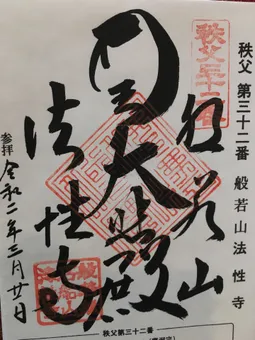 秩父 第三十二番 般若山法性寺
秩父三十二番
般若山
大悲殿
法性寺
参拝
令和二年三月廿日
秩父第三十二番